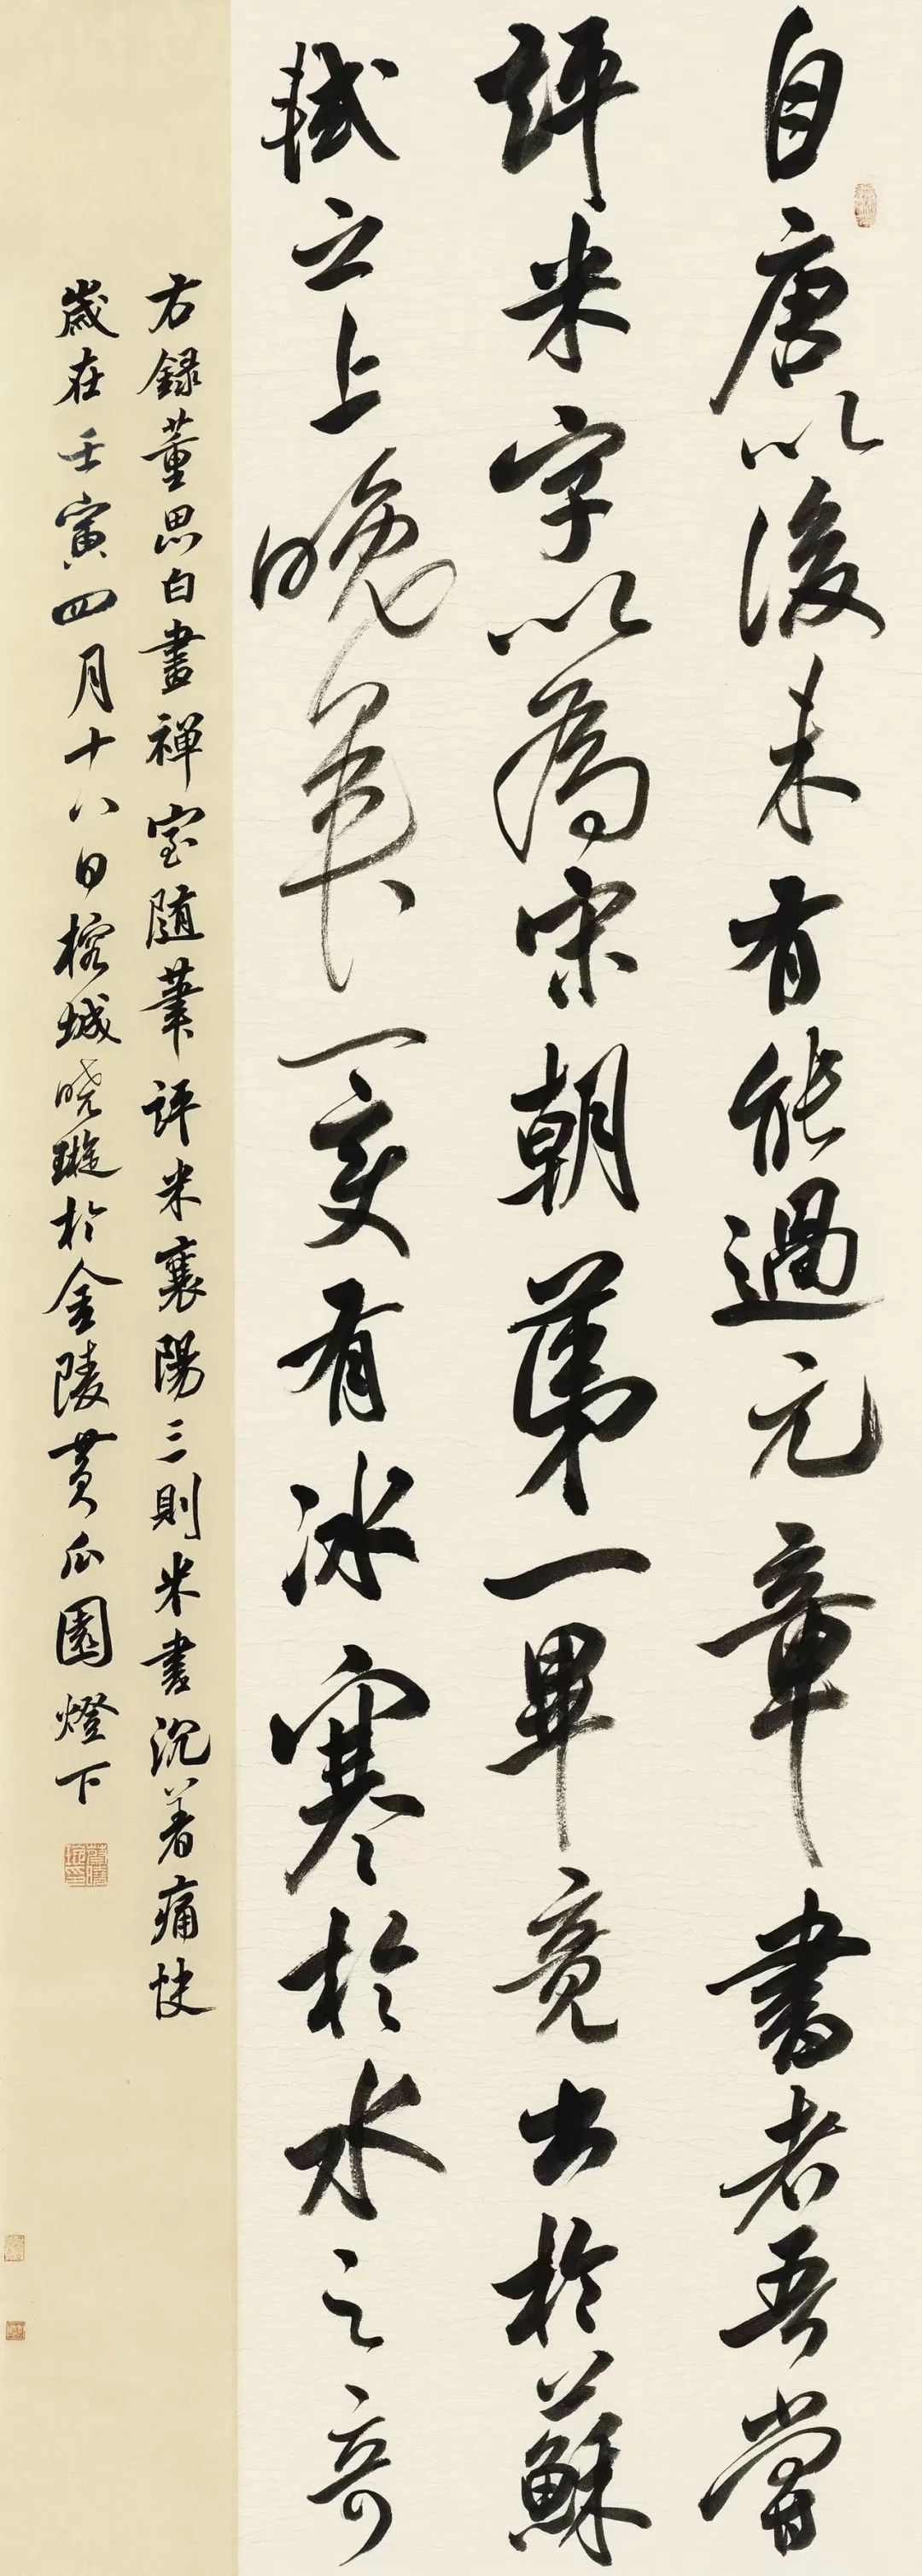 自唐以後未有能過元章書者吾嘗
評米字以為宋朝第一畢竟出於蘇
軾之上晚年一變有冰寒於水之奇
右録董思白畫禅室随筆評米襄陽三則米書沉着痛快
歲在壬寅四月十八日榕城晓璇於金陵黄瓜園燈下